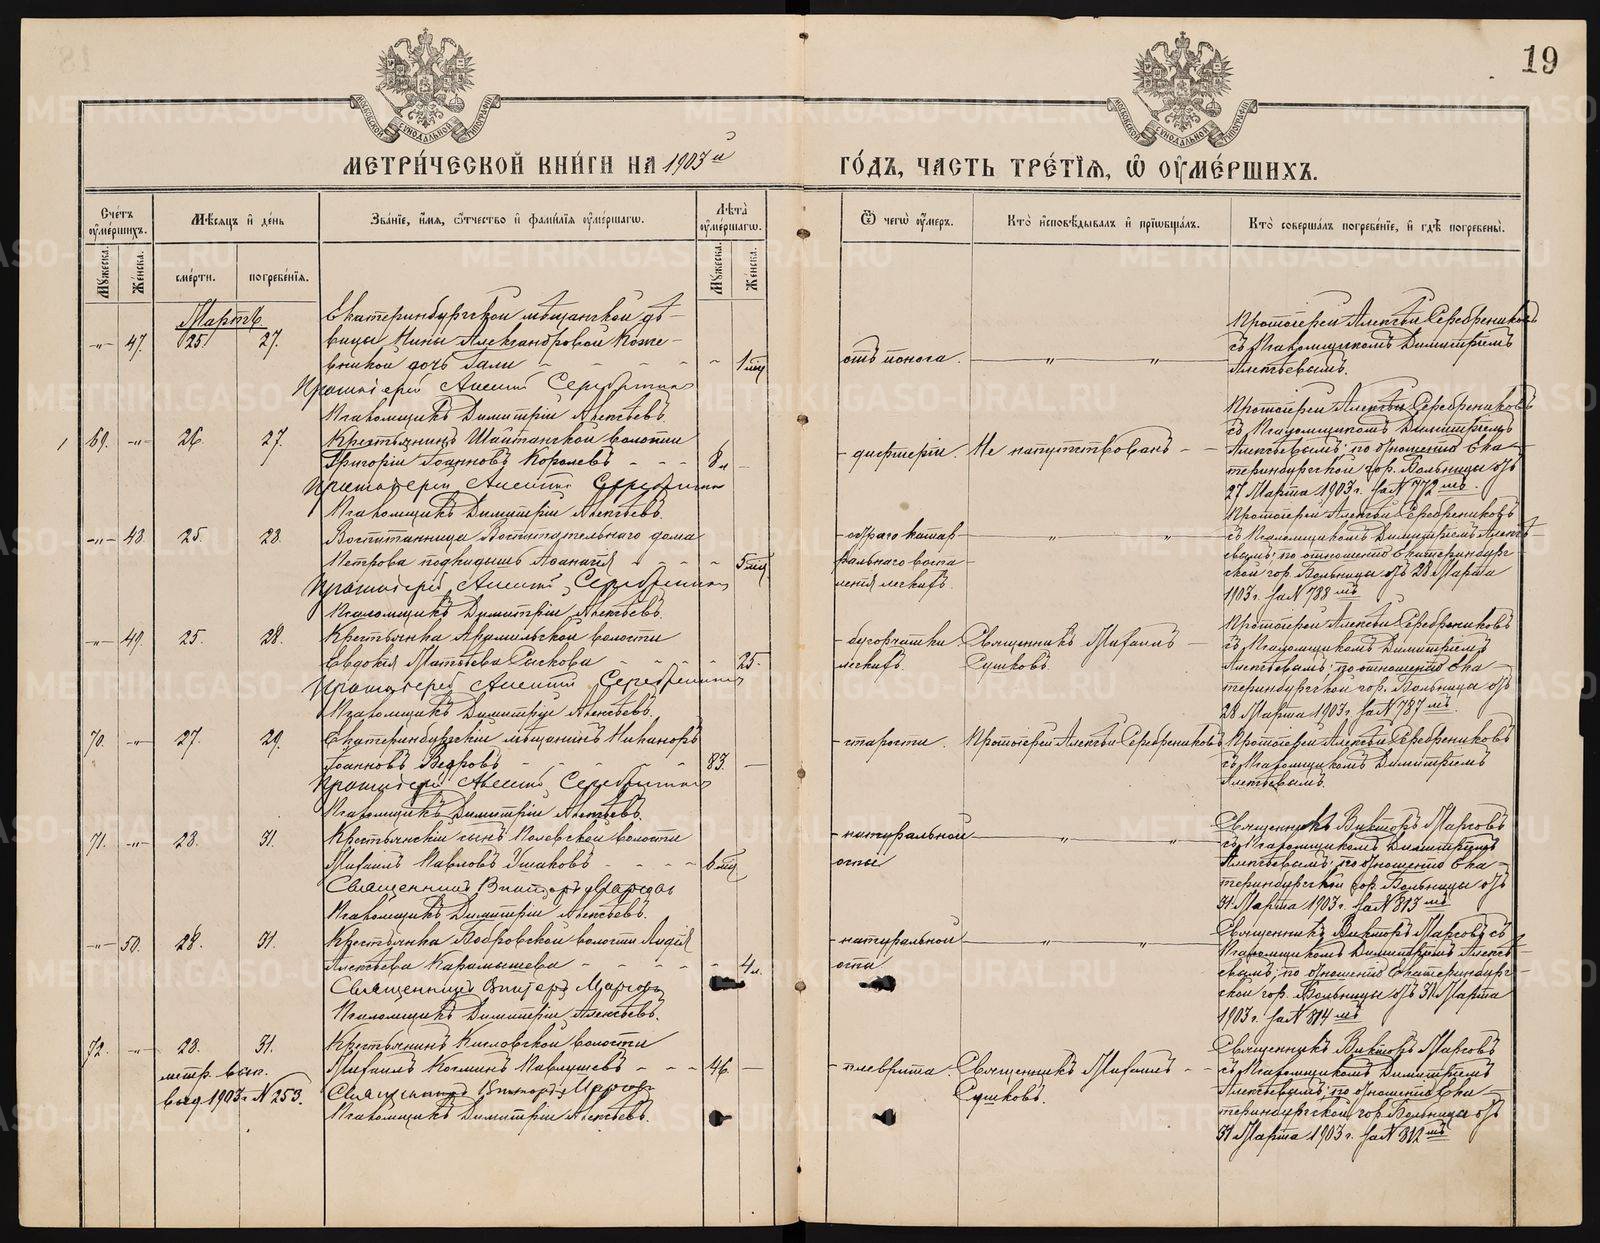 19
МЕТРИ́ЧЕСКОЙ КНИ́ГИ НА 1903 й
ГО́ДЪ, ЧАСТЬ ТРЕ́ТІѦ, Ѡ ОУМЕ́РШИХЪ.
Сче́тъ оуме́ршихъ.
Мѣсяцъ и де́нь
Зва́ніе, и́мя, о́тчество и фами́лія оуме́ршагѡ.
Лѣта̀ оуме́ршагѡ.
Ѿ чегѡ̀ оу́меръ.
Кто̀ исповѣ́дывалъ и пріѡбща́лъ.
Кто̀ соверша́лъ погребе́ніе, и гдѣ̀ погребены̀.
Мужеска.
Же́нска.
сме́рти.
погребе́нія.
Мужеска.
Же́нска.
Мартъ.
-"- 47. 25 27.
Екатеринбургской мѣщанской дѣ-
вицы Нины Александровой Коже-
вниковой дочь Гали - - - 1 мц
Протоіерей Алексій Серебрениковъ
Псаломщикъ Димитрій Алексѣевъ.
отъ поноса. - " - "
Протоіерей Алексѣй Серебрениковъ
съ Псаломщикомъ Димитріемъ
Алексѣевымъ.
69. -"- 26. 27.
Крестьянинъ Шайтанской волости
Григорій Іоанновъ Королевъ - - - 8 л -
Протоіерей Алексій Серебрениковъ
Псаломщикъ Димитрій Алексѣевъ.
- дифтеріи. Не напутствованъ - -
Протоіерей Алексѣй Серебрениковъ
съ Псаломщикомъ Димитріемъ
Алексѣевымъ; по отношенію Ека-
теринбургской гор. Больницы отъ
27 Марта 1903 г. за № 772 мъ.
-"- 48. 25. 28.
Воспитанница Воспитательнаго дома
Петрова подкидышъ Аѳанасія - - - 5 мц
Протоіерей Алексій Серебрениковъ
Псаломщикъ Димитрій Алексѣевъ.
- остраго катар
ральнаго воспа-
ленія легкихъ.
Протоіерей Алексѣй Серебрениковъ
съ Псаломщикомъ Димитріемъ Алексѣ-
евымъ; по отношенію Екатеринбург
ской гор. Больницы отъ 28 Марта
1903 г. за № 788 мъ
-"- 49. 25. 28.
Крестьянка Арамильской волости
Евдокія Матѳеева Сыскова - - - 25.
Протоіерей Алексій Серебрениковъ
Псаломщикъ Димитрій Алексѣевъ.
- бугорчатки
легкихъ.
Священникъ Михаилъ -
Сушковъ.
Протоіерей Алексѣй Серебрениковъ
съ Псаломщикомъ Димитріемъ
Алексѣевымъ; по отношенію Ека-
теринбургской гор. Больницы отъ
28 Марта 1903 г. за № 787 мъ.
70. -"- 27. 29.
Екатеринбургскій мѣщанинъ Никаноръ
Іоанновъ Ведровъ - - - 83. -
Протоіерей Алексій Серебрениковъ
Псаломщикъ Димитрій Алексѣевъ.
- старости. Протоіерей Алексѣй Серебрениковъ
Протоіерей Алексѣй Серебрениковъ
съ Псаломщикомъ Димитріемъ
Алексѣевымъ.
71. -"- 28. 31.
Крестьянскій сынъ Полевской волости
Михаилъ Павловъ Ушаковъ - - - 6 мц
Священникъ Викторъ Марковъ
Псаломщикъ Димитрій Алексѣевъ.
- натуральной
оспы
Священникъ Викторъ Марковъ
съ Псаломщикомъ Димитріемъ
Алексѣевымъ; по отношенію Ека-
теринбургской гор. Больницы отъ
31 Марта 1903 г. за № 813 мъ
-"- 50. 28. 31.
Крестьянка Бобровской волости Лидія
Алексѣева Карамышева - - - 4 л.
Священникъ Викторъ Марковъ
Псаломщикъ Димитрій Алексѣевъ.
- натуральной
оспы
Священникъ Викторъ Марковъ съ
Псаломщикомъ Димитріемъ Алексѣ-
евымъ; по отношенію Екатеринбург-
ской гор. Больницы отъ 31 Марта
1903 г. за № 814 мъ
72. -"- 28. 31.
метр. вып.
выд. 1903 г. № 253.
Крестьянинъ Кисловской волости
Михаилъ Косминъ Павлушевъ - - - 46. -
Священникъ Викторъ Марковъ
Псаломщикъ Димитрій Алексѣевъ.
- плеврита. Священникъ Михаилъ - -
Сушковъ.
Священникъ Викторъ Марковъ
съ Псаломщикомъ Димитріемъ
Алексѣевымъ; по отношенію Ека-
теринбургской гор. Больницы отъ
31 Марта 1903 г. за № 812 мъ
METRIKI.GASO-URAL.RU